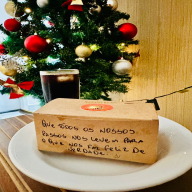 QUE TODOS OS NOSSOS
PASSOS NOS LEVEM PARA
O QUE NOS FAZ FELIZ DE
VERDADE